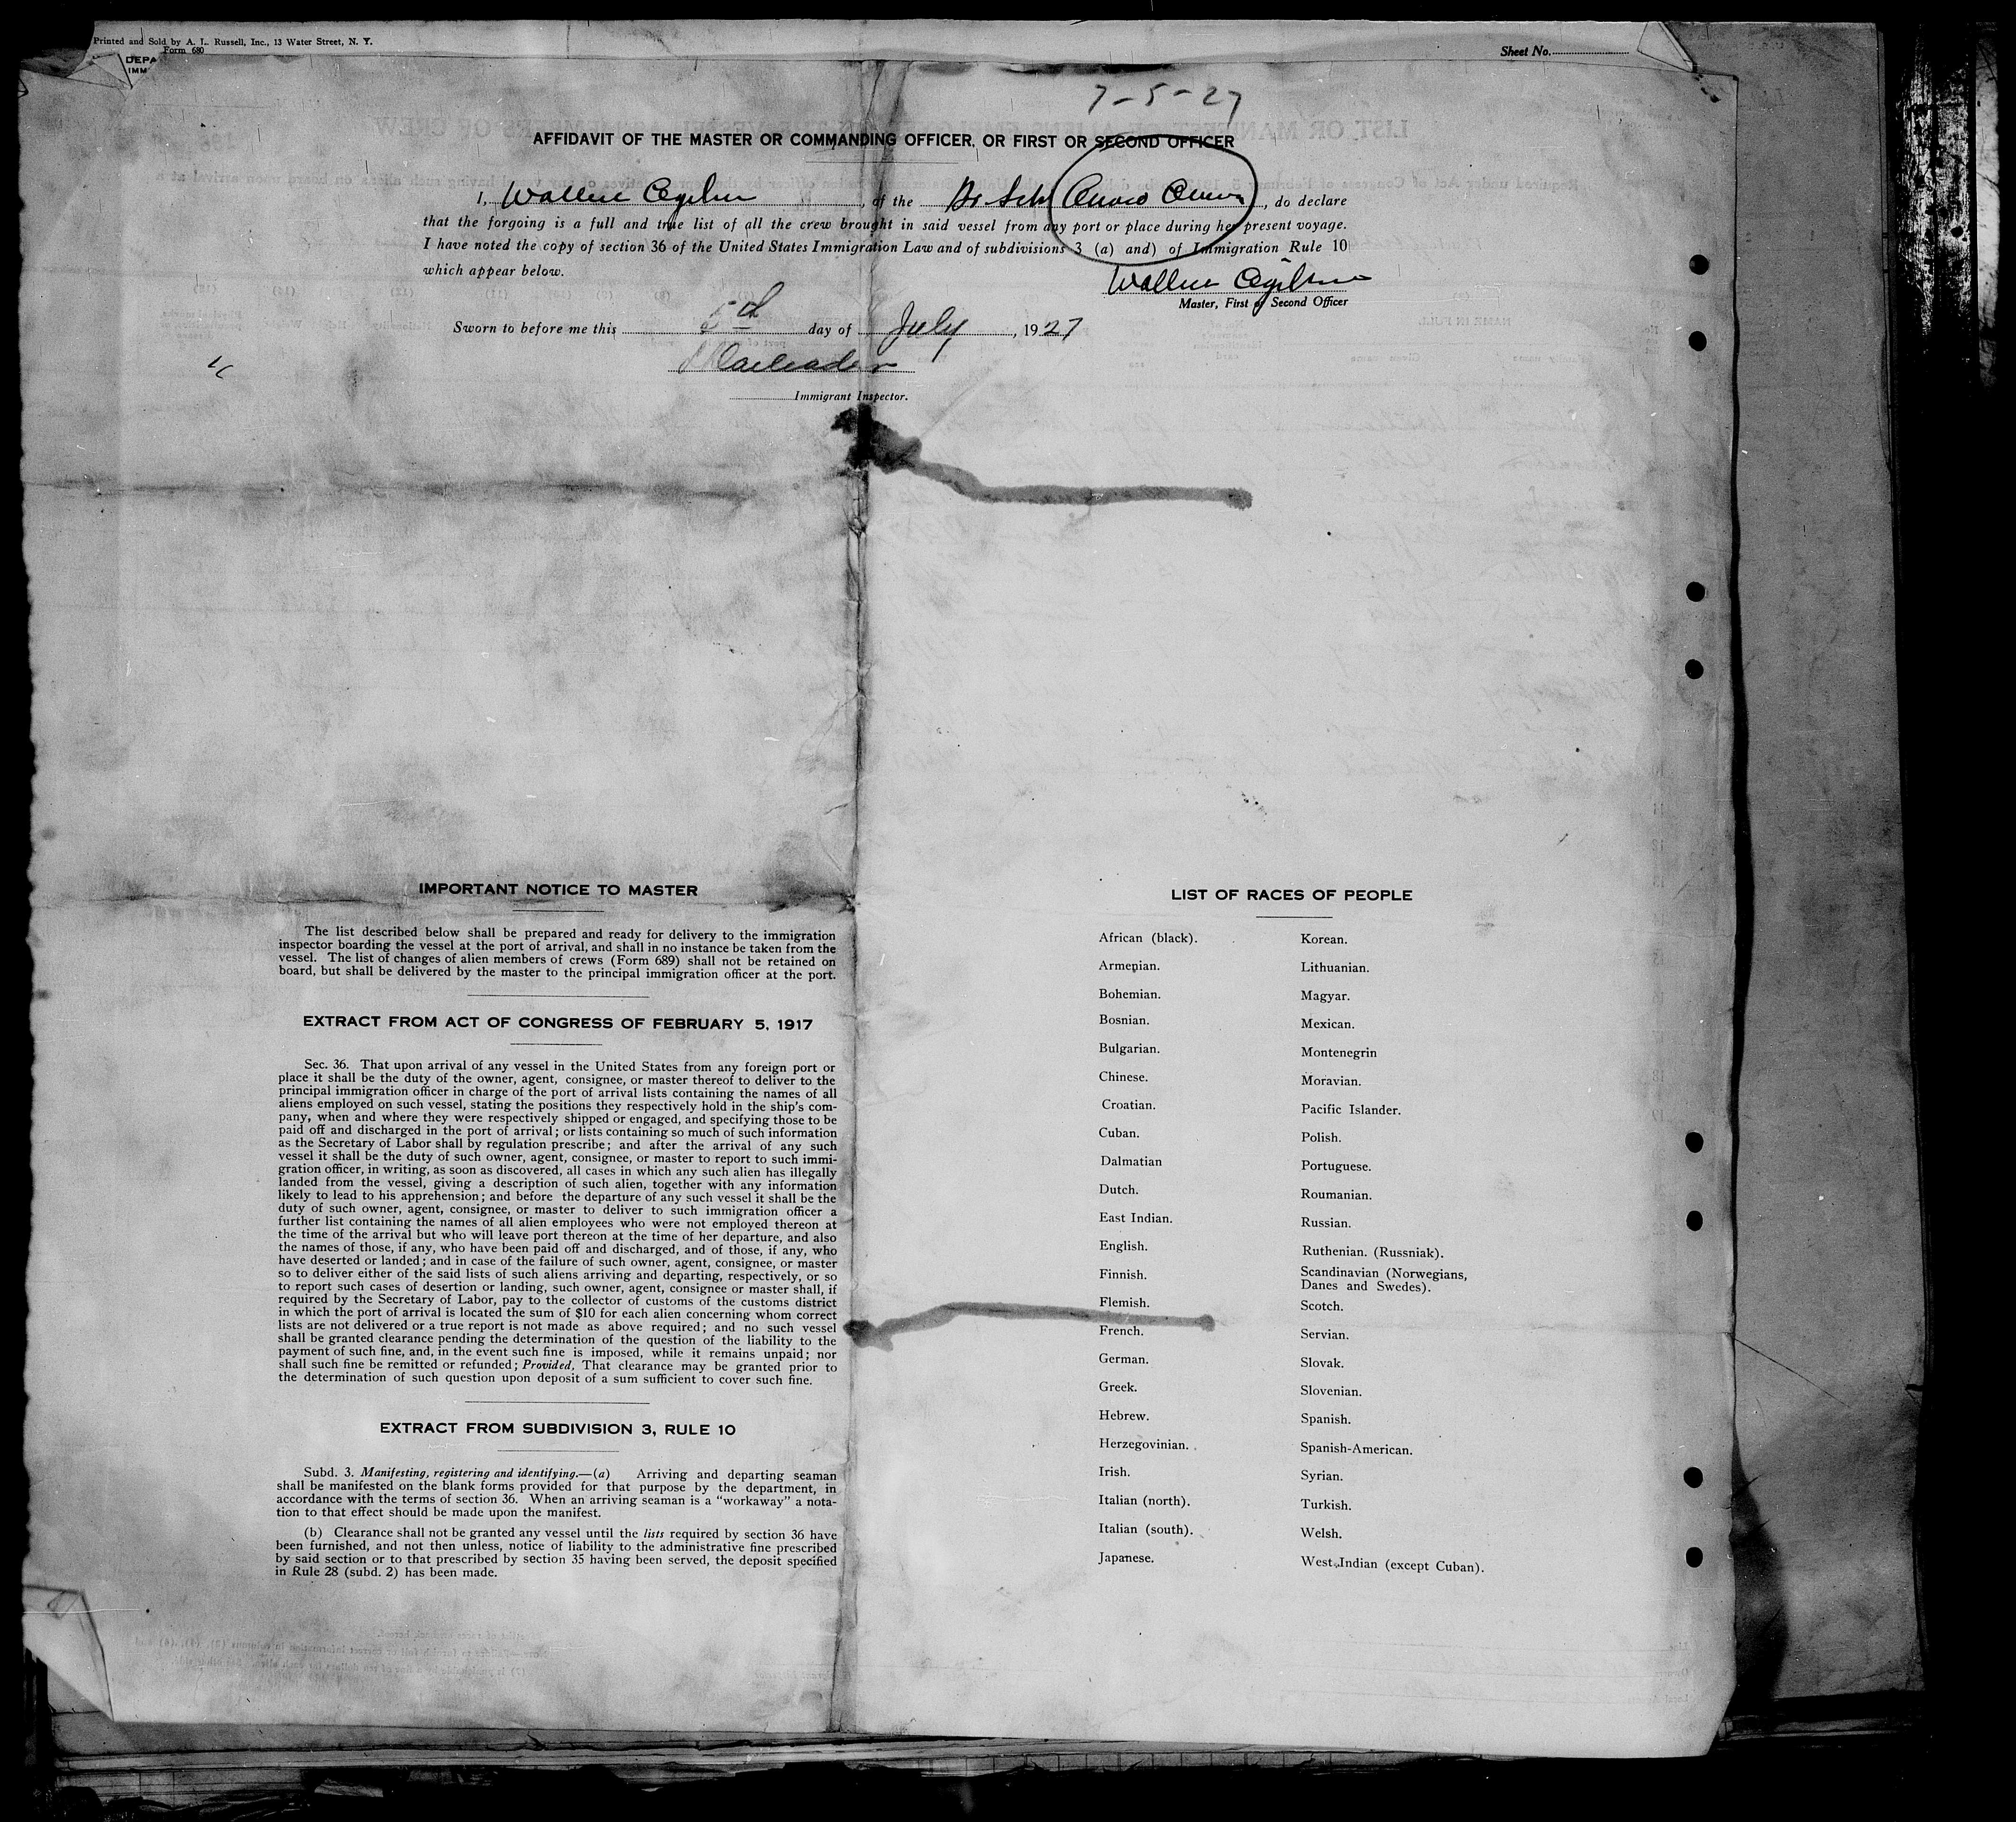 Printed and Sold by A. L. Russell, Inc., 13 Water Street, N. Y.
Form 680
Sheet No.
DEPA
IMM
7-5-27
AFFIDAVIT OF THE MASTER OR COMMANDING OFFICER, OR FIRST OR SECOND OFFICER
I, Wallace, of the Br Sch, do declare
that the forgoing is a full and true list of all the crew brought in said vessel from any port or place during her present voyage.
I have noted the copy of section 36 of the United States Immigration Law and of subdivisions 3 (a) and) of Immigration Rule 10
which appear below.
Wallace
Master, First or Second Officer
Sworn to before me this 5th day of July, 1927
Immigrant Inspector.
IMPORTANT NOTICE TO MASTER
The list described below shall be prepared and ready for delivery to the immigration
inspector boarding the vessel at the port of arrival, and shall in no instance be taken from the
vessel. The list of changes of alien members of crews (Form 689) shall not be retained on
board, but shall be delivered by the master to the principal immigration officer at the port.
EXTRACT FROM ACT OF CONGRESS OF FEBRUARY 5, 1917
Sec. 36. That upon arrival of any vessel in the United States from any foreign port or
place it shall be the duty of the owner, agent, consignee, or master thereof to deliver to the
principal immigration officer in charge of the port of arrival lists containing the names of all
aliens employed on such vessel, stating the positions they respectively hold in the ship's com-
pany, when and where they were respectively shipped or engaged, and specifying those to be
paid off and discharged in the port of arrival; or lists containing so much of such information
as the Secretary of Labor shall by regulation prescribe; and after the arrival of any such
vessel it shall be the duty of such owner, agent, consignee, or master to report to such immi-
gration officer, in writing, as soon as discovered, all cases in which any such alien has illegally
landed from the vessel, giving a description of such alien, together with any information
likely to lead to his apprehension; and before the departure of any such vessel it shall be the
duty of such owner, agent, consignee, or master to deliver to such immigration officer a
further list containing the names of all alien employees who were not employed thereon at
the time of the arrival but who will leave port thereon at the time of her departure, and also
the names of those, if any, who have been paid off and discharged, and of those, if any, who
have deserted or landed; and in case of the failure of such owner, agent, consignee, or master
so to deliver either of the said lists of such aliens arriving and departing, respectively, or so
to report such cases of desertion or landing, such owner, agent, consignee or master shall, if
required by the Secretary of Labor, pay to the collector of customs of the customs district
in which the port of arrival is located the sum of $10 for each alien concerning whom correct
lists are not delivered or a true report is not made as above required; and no such vessel
shall be granted clearance pending the determination of the question of the liability to the
payment of such fine, and, in the event such fine is imposed, while it remains unpaid; nor
shall such fine be remitted or refunded; Provided, That clearance may be granted prior to
the determination of such question upon deposit of a sum sufficient to cover such fine.
EXTRACT FROM SUBDIVISION 3, RULE 10
Subd. 3. Manifesting, registering and identifying.—(a) Arriving and departing seaman
shall be manifested on the blank forms provided for that purpose by the department, in
accordance with the terms of section 36. When an arriving seaman is a "workaway" a nota-
tion to that effect should be made upon the manifest.
(b) Clearance shall not be granted any vessel until the lists required by section 36 have
been furnished, and not then unless, notice of liability to the administrative fine prescribed
by said section or to that prescribed by section 35 having been served, the deposit specified
in Rule 28 (subd. 2) has been made.
LIST OF RACES OF PEOPLE
African (black).
Armenian.
Bohemian.
Bosnian.
Bulgarian.
Chinese.
Croatian.
Cuban.
Dalmatian
Dutch.
East Indian.
English.
Finnish.
Flemish.
French.
German.
Greek.
Hebrew.
Herzegovinian.
Irish.
Italian (north).
Italian (south).
Japanese.
Korean.
Lithuanian.
Magyar.
Mexican.
Montenegrin
Moravian.
Pacific Islander.
Polish.
Portuguese.
Roumanian.
Russian.
Ruthenian. (Russniak).
Scandinavian (Norwegians,
Danes and Swedes).
Scotch.
Servian.
Slovak.
Slovenian.
Spanish.
Spanish-American.
Syrian.
Turkish.
Welsh.
West Indian (except Cuban).